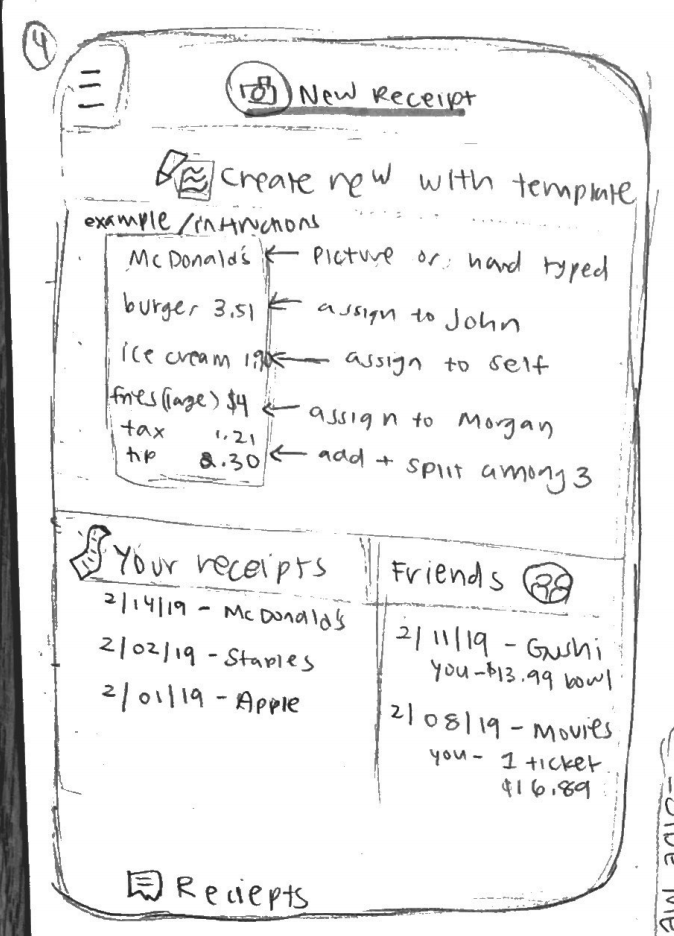 4
New Receipt
Create new with template
example/instructions
McDonald's ← Picture or hand typed
burger 3.51 ← assign to John
ice cream 1.90 ← assign to self
fries (large) $4 ← assign to Morgan
tax 1.21
tip 2.30 ← add + split among 3
Your receipts
2/14/19 - McDonald's
2/02/19 - Staples
2/01/19 - Apple
Friends
2/11/19 - Gushi
you - $13.99 bowl
2/08/19 - Movies
you - 1 ticket
$16.89
Reciepts